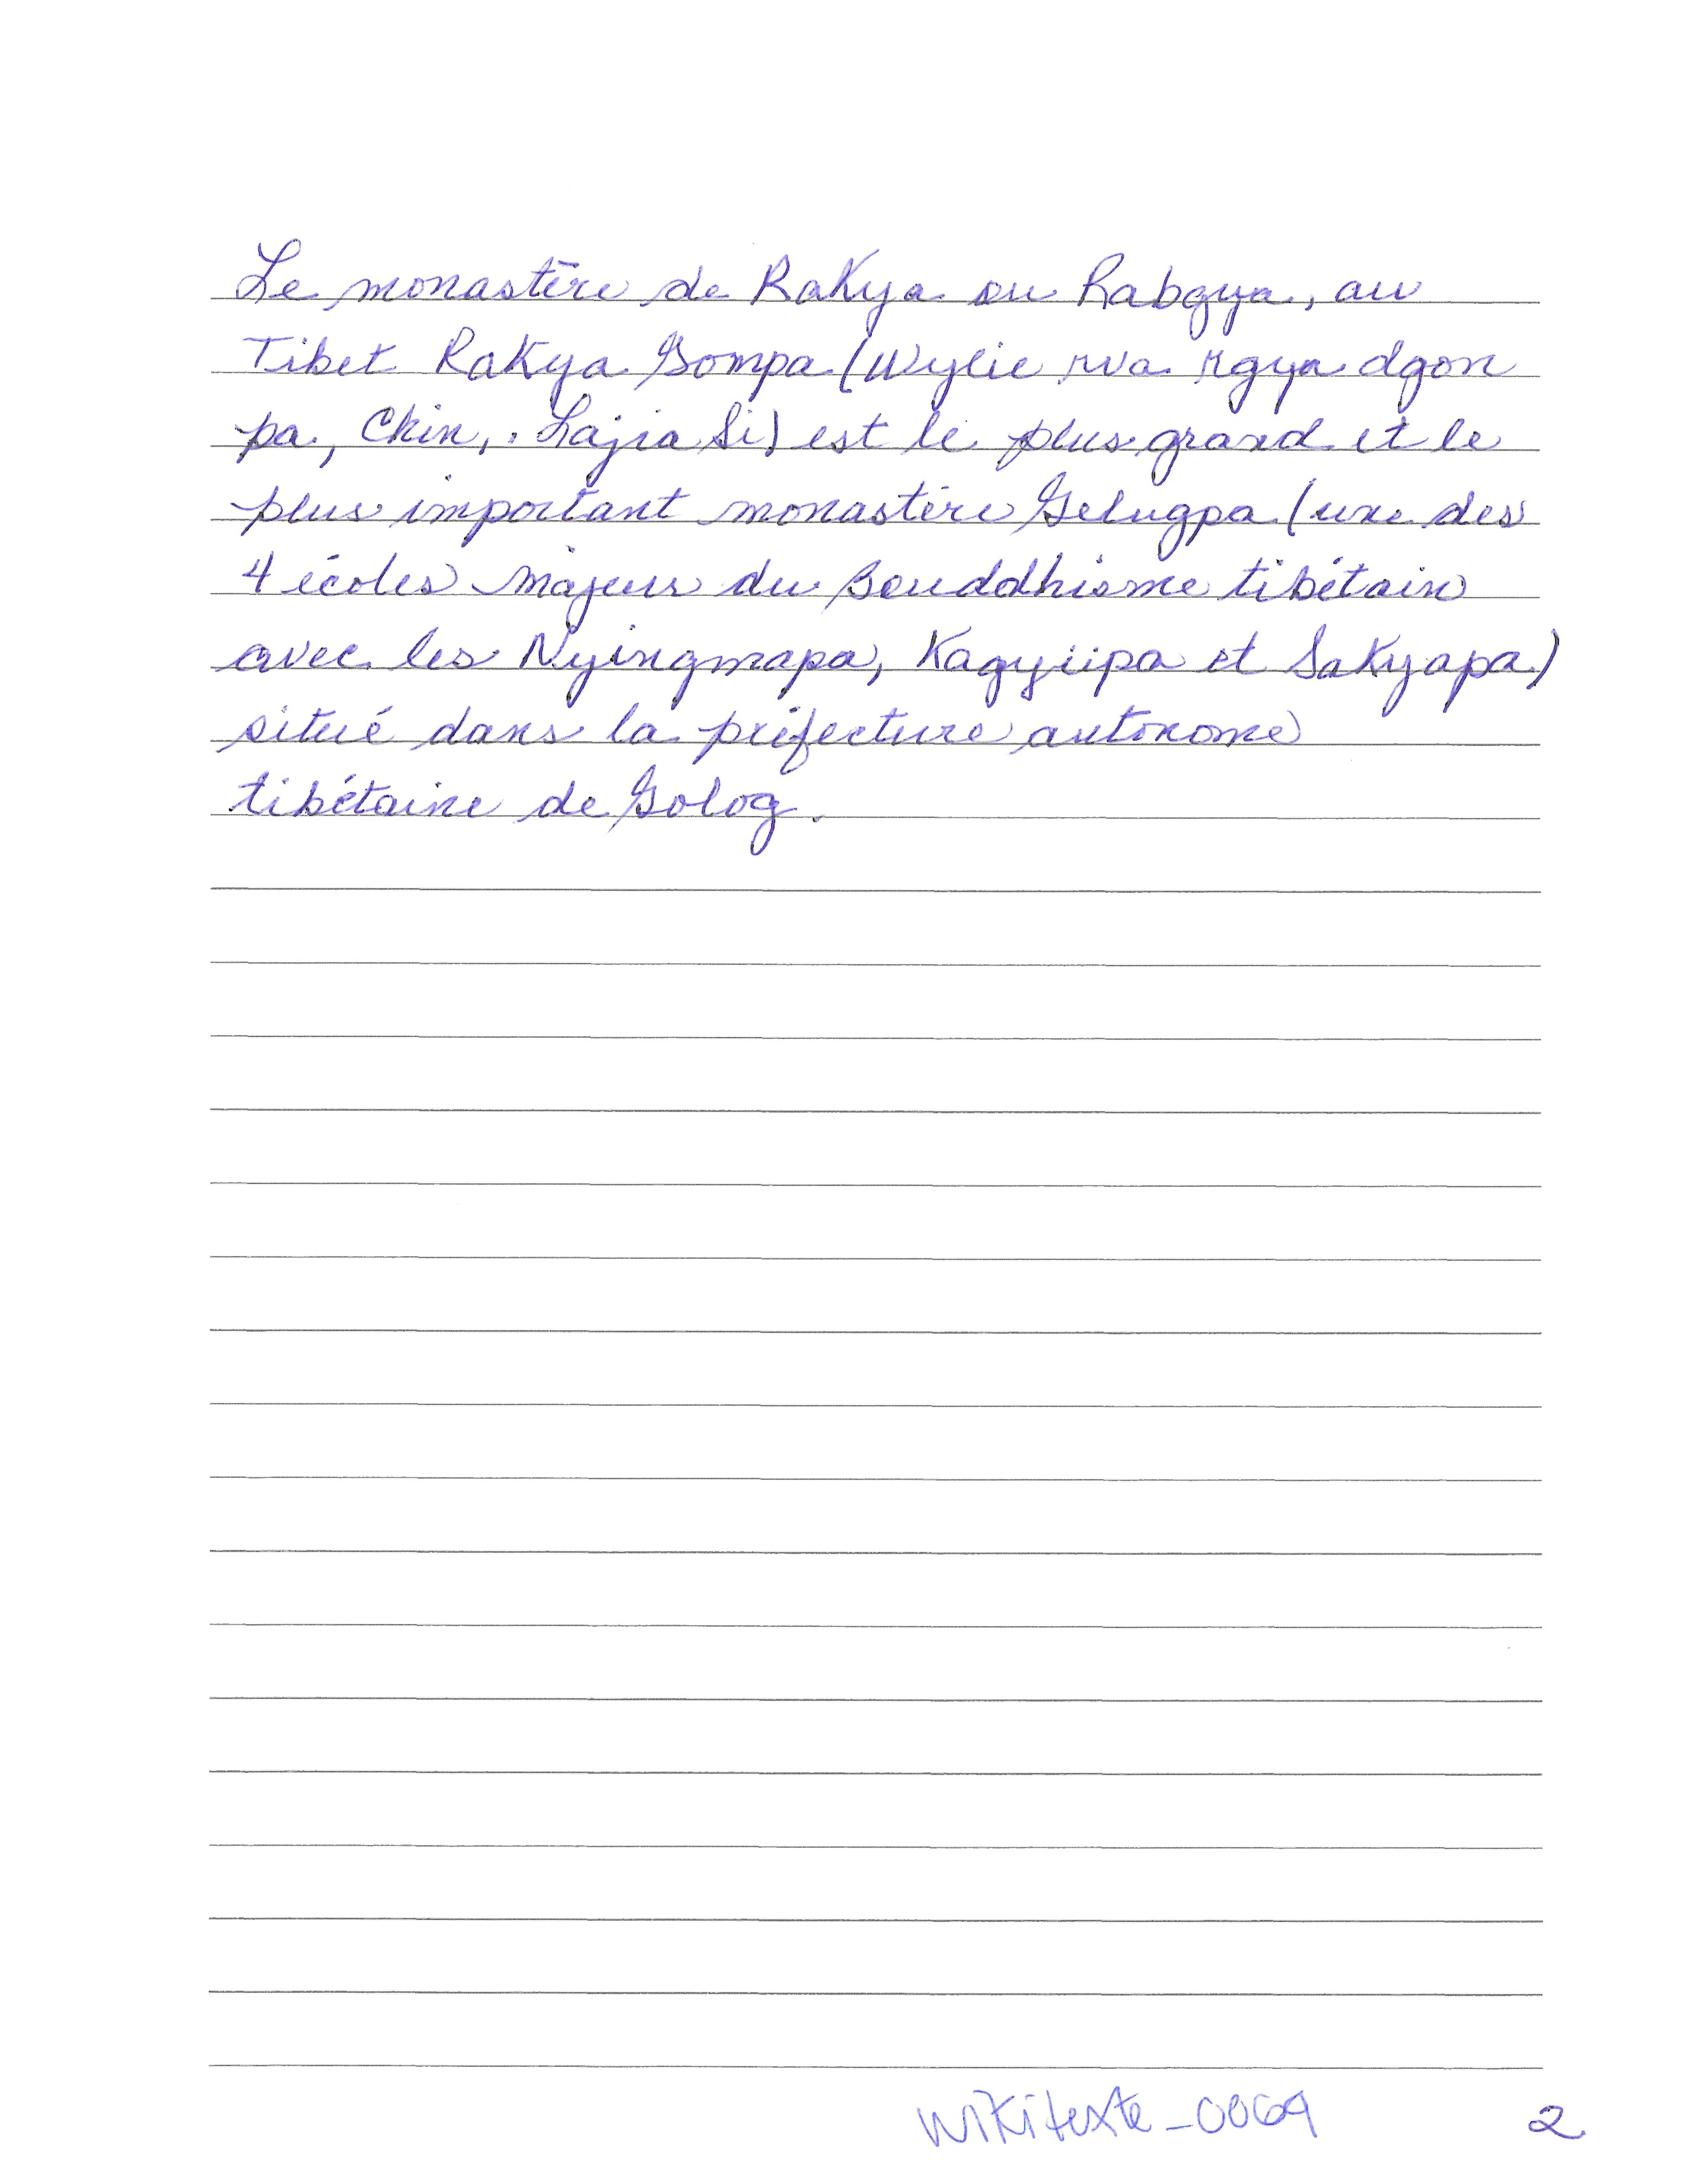 Le monastère de Rakya ou Rabgya, au
Tibet Rakya Gompa (Wylie rva rgya dgon
pa, Chin, . Lajia Si) est le plus grand et le
plus important monastère Gelugpa (une des
4 écoles majeurs du Bouddhisme tibétain
avec les Nyingmapa, Kagyüpa et Sakyapa)
situé dans la préfecture autonome
tibétaine de Golog.
wikitexte_0069
2